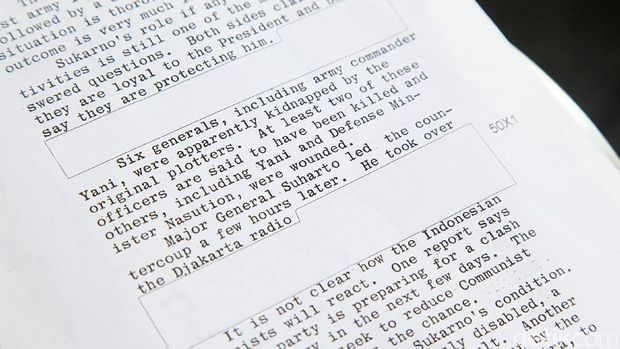 st army
followed by a
situation is
outcome is very much i
Sukarno's role if any
tivities is still one of the m
swered questions. Both sides cla
they are loyal to the President and b
say they are protecting him.
Six generals, including army commander
Yani, were apparently kidnapped by the
original plotters. At least two of these
officers are said to have been killed and
others, including Yani and Defense Min-
ister Nasution, were wounded.
Major General Suharto led the coun-
tercoup a few hours later. He took over
the Djakarta radio
50X1
It is not clear how the Indonesian
ists will react. One report says
party is preparing for a clash
y in the next few days. The
eek to reduce Communist
the chance.
Sukarno's condition.
ly disabled, a
ly. Another
by the
to